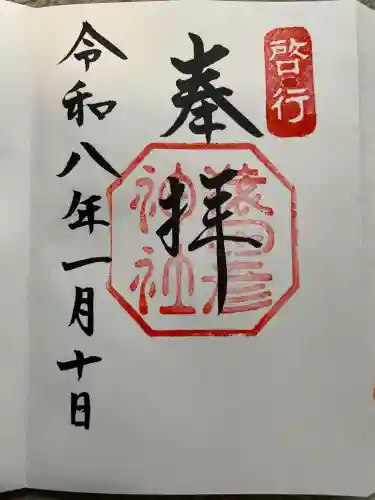 啓行
奉拝
猿田彦
神社
令和八年一月十日